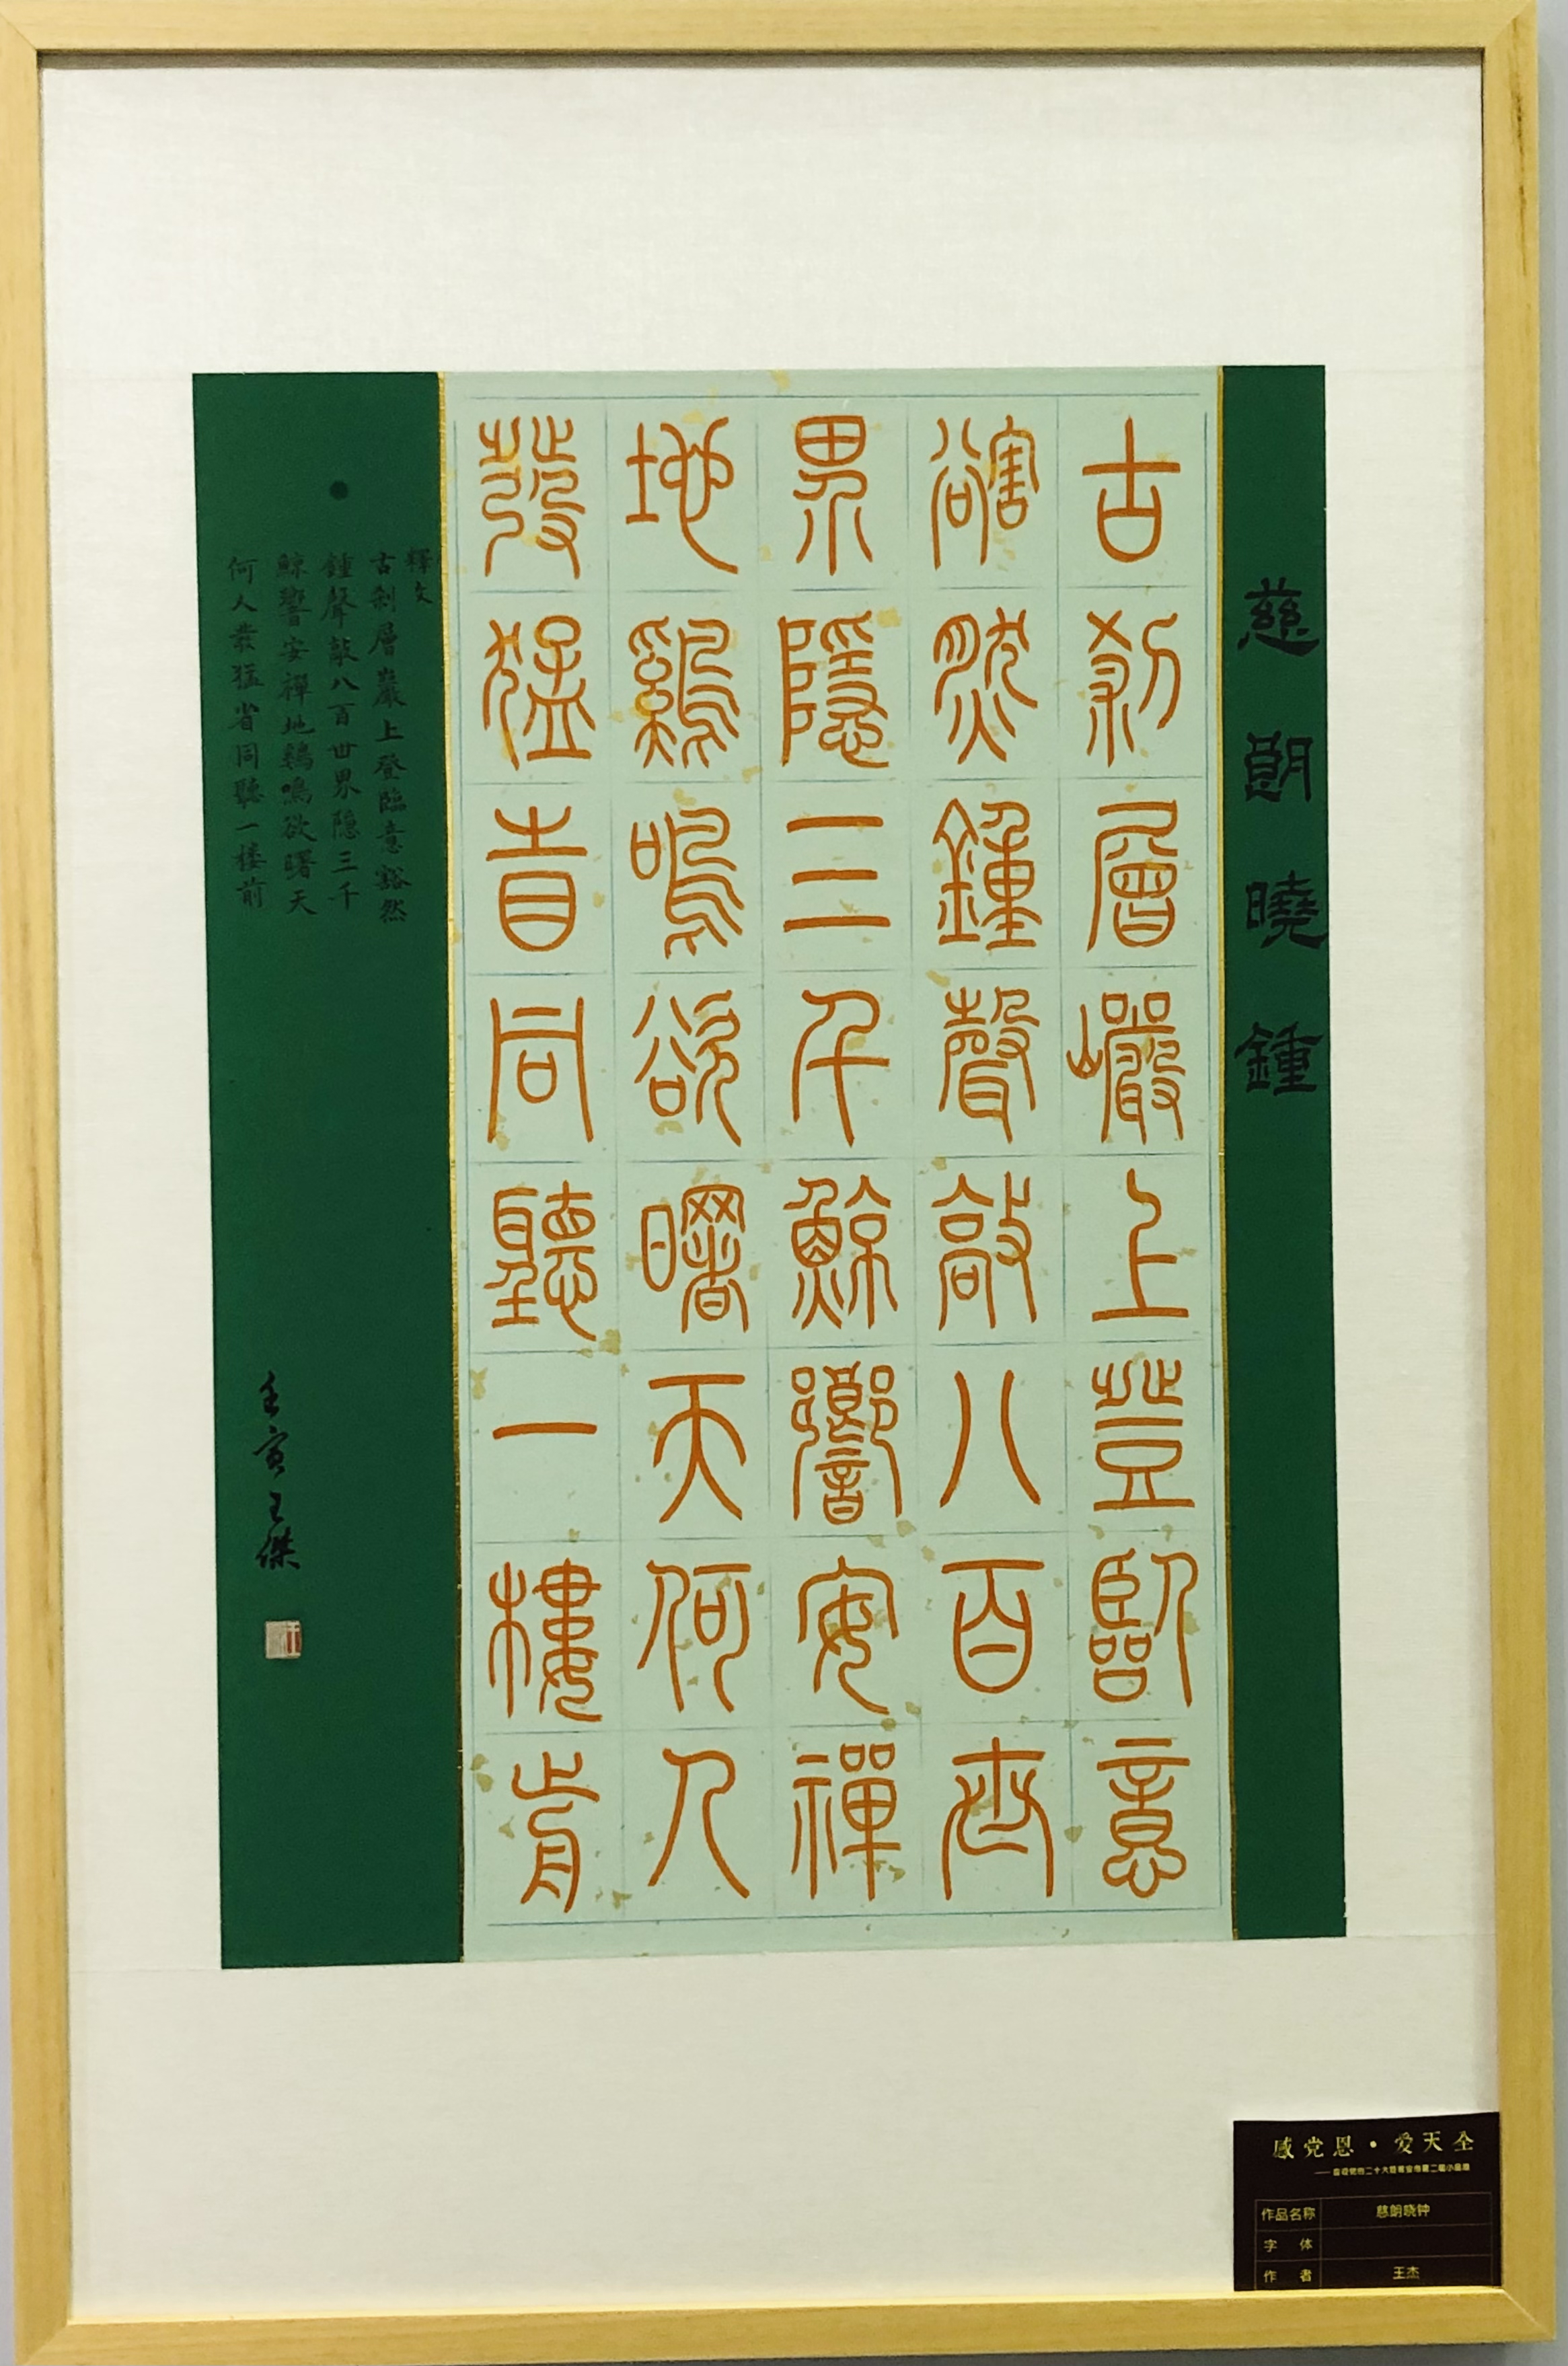 慈朗曉鍾
古剎層巖上登臨意
豁然鍾聲敲八百世
界隱三千鯨響安禪
地鷄鳴欲曙天何人
發猛省同聽一樓前
釋文
古剎層巖上登臨意豁然
鍾聲敲八百世界隱三千
鯨響安禪地鷄鳴欲曙天
何人發猛省同聽一樓前
壬寅王傑
感党恩·爱天全
作品名称 慈朗晓钟
字 体
作 者 王杰